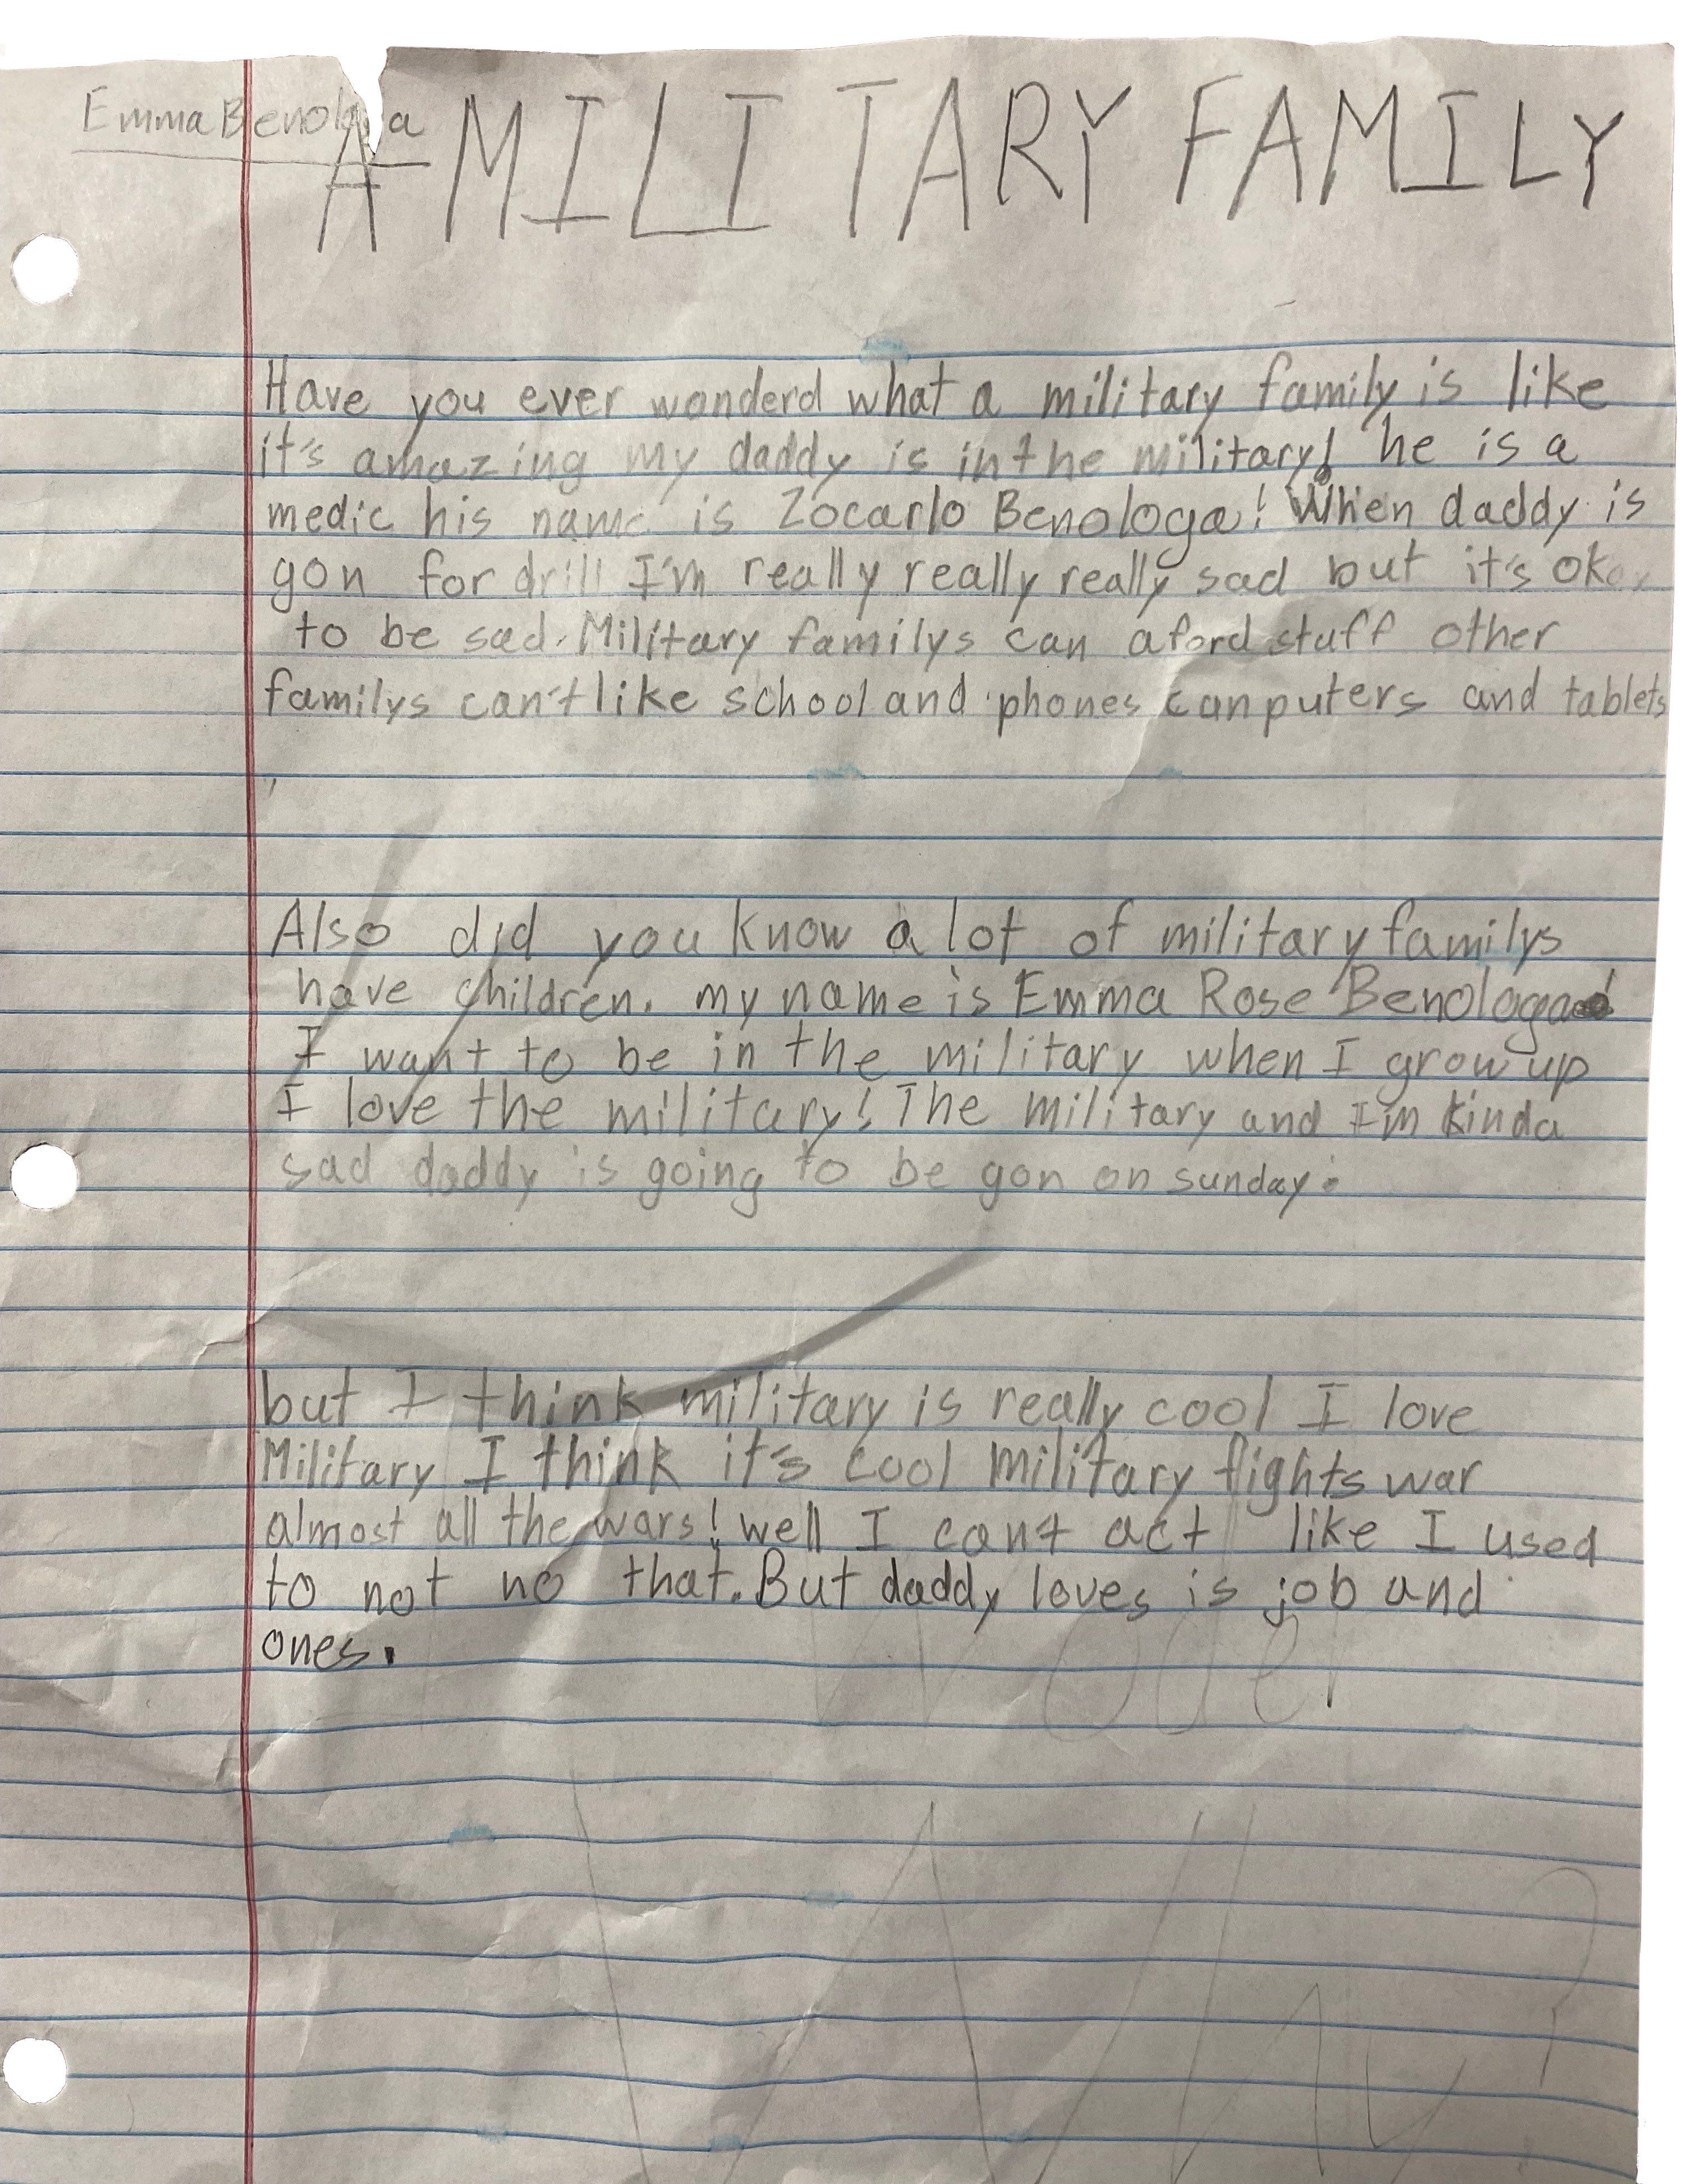 Emma Benologa
A MILITARY FAMILY
Have you ever wonderd what a military family is like
it's amazing my daddy is in the military! he is a
medic his name is Zocarlo Benologa! When daddy is
gon for drill I'm really really really sad but it's okay
to be sad. Military familys can aford stuff other
familys can't like school and phones canputers and tablets
Also did you know a lot of military familys
have children. my name is Emma Rose Benologa!
I want to be in the military when I grow up
I love the military! The military and I'm kinda
sad daddy is going to be gon on sunday.
but I think military is really cool I love
Military I think it's cool military fights war
almost all the wars! well I cant act like I used
to not no that. But daddy loves is job and
ones.